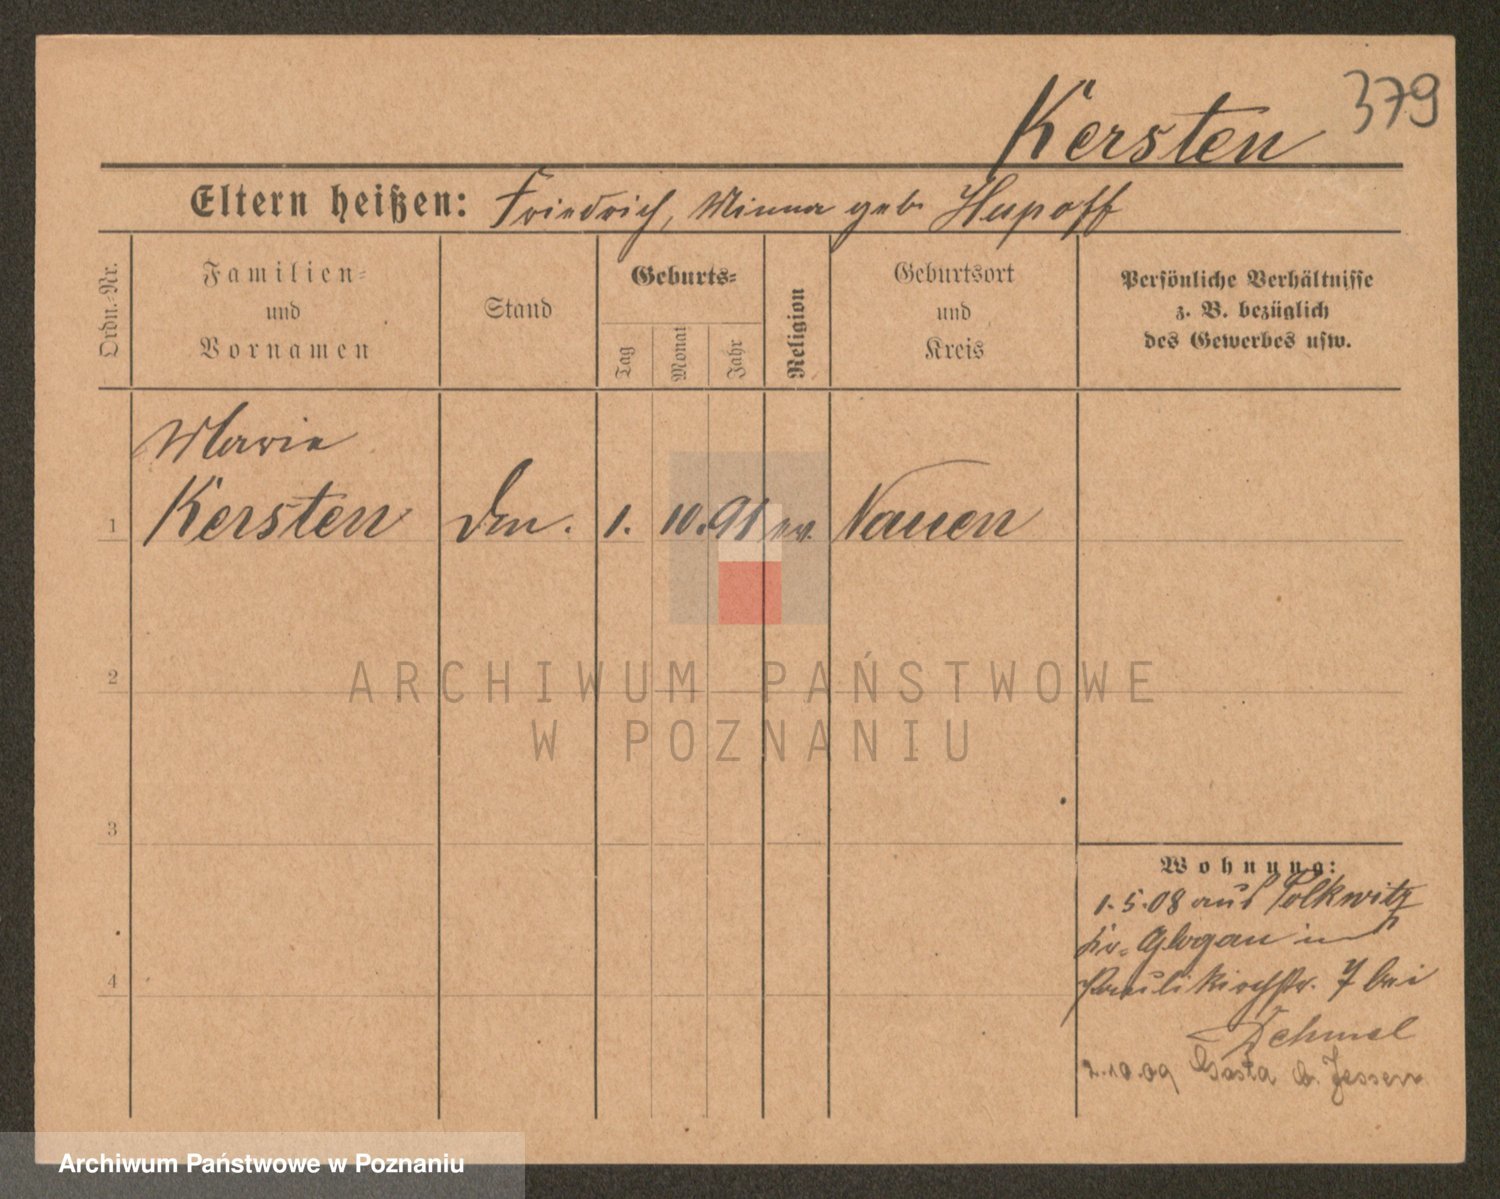 Kersten 379
Eltern heißen: Friedrich, Minna geb. Hupoff
Ordn.-Nr.
Familien-
und
Vornamen
Stand
Geburts-
Tag
Monat
Jahr
Religion
Geburtsort
und
Kreis
Persönliche Verhältnisse
z. B. bezüglich
des Gewerbes usw.
Marie
1 Kersten 1. 10. 91 ev. Nauen
2
3
4
Wohnung:
1.5.08 aus Polkwitz
Kr. Glogau in
Paulikirchstr. 7 bei
Dehmel
2.10.09 b. Jessen
ARCHIWUM PAŃSTWOWE
W POZNANIU
Archiwum Państwowe w Poznaniu